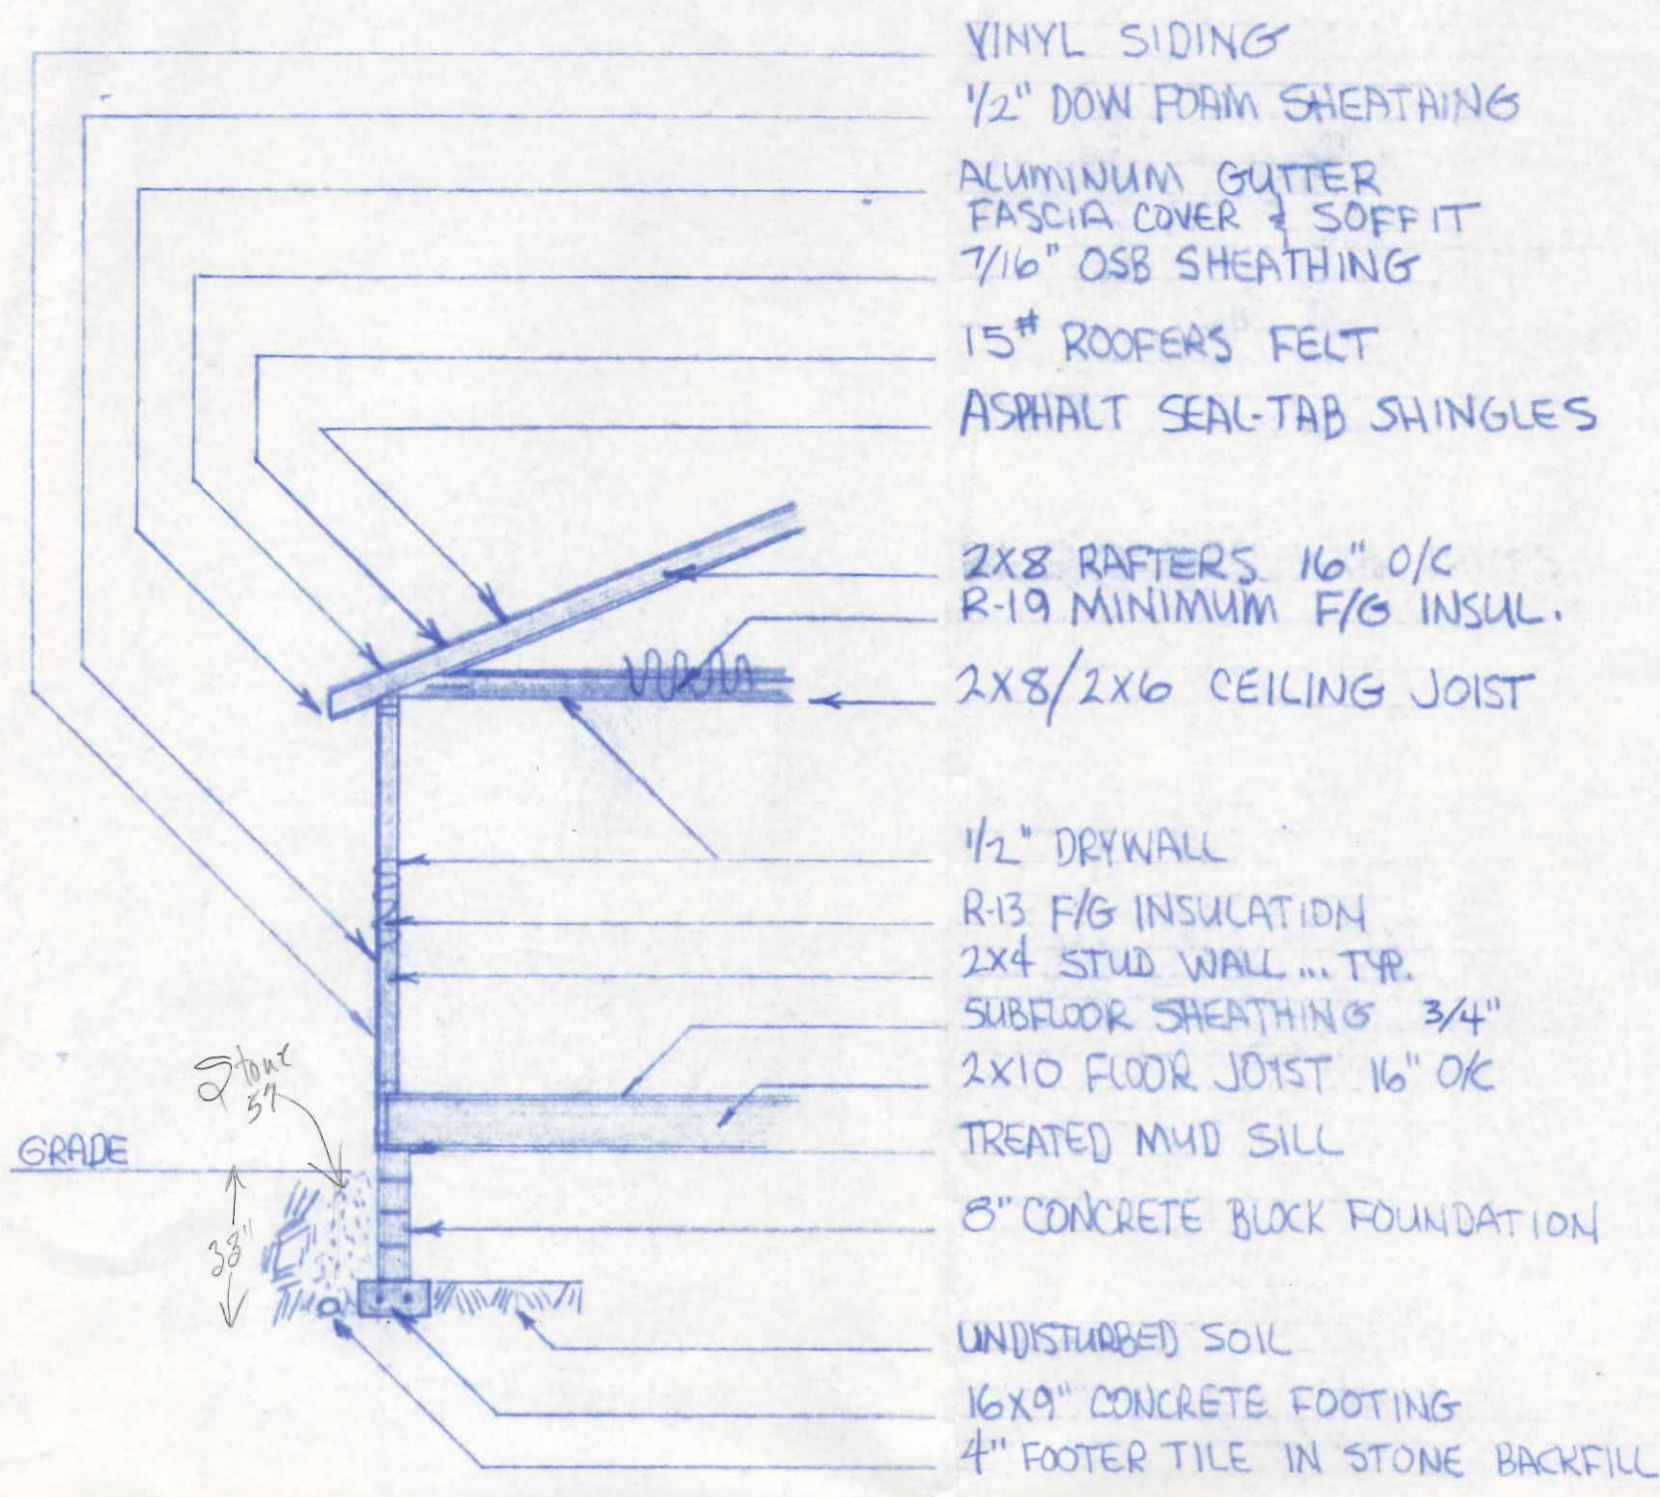 VINYL SIDING
1/2" DOW FOAM SHEATHING
ALUMINUM GUTTER
FASCIA COVER & SOFFIT
7/16" OSB SHEATHING
15# ROOFERS FELT
ASPHALT SEAL-TAB SHINGLES
2X8 RAFTERS 16" O/C
R-19 MINIMUM F/G INSUL.
2X8/2X6 CEILING JOIST
1/2" DRYWALL
R-13 F/G INSULATION
2X4 STUD WALL ... TYP.
SUBFLOOR SHEATHING 3/4"
2X10 FLOOR JOIST 16" O/C
TREATED MUD SILL
8" CONCRETE BLOCK FOUNDATION
UNDISTURBED SOIL
16X9" CONCRETE FOOTING
4" FOOTER TILE IN STONE BACKFILL
Stone
57
GRADE
38"